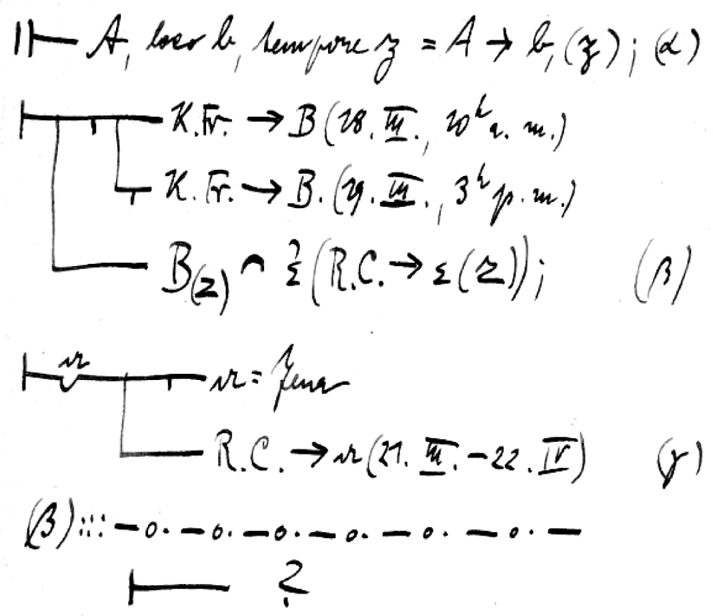 A, loco b, tempore z = A → b, (z); (α)
K. Fr. → B (28. III., 10h a. m.)
K. Fr. → B. (29. III., 3h p. m.)
B(z) ⌢ ἐ (R.C. → ε (z)); (β)
𝔫
𝔫 = Jena
R.C. → 𝔫 (21. III. – 22. IV) (γ)
(β) ::: — o. — o. — o. — o. — o. — o. —
?